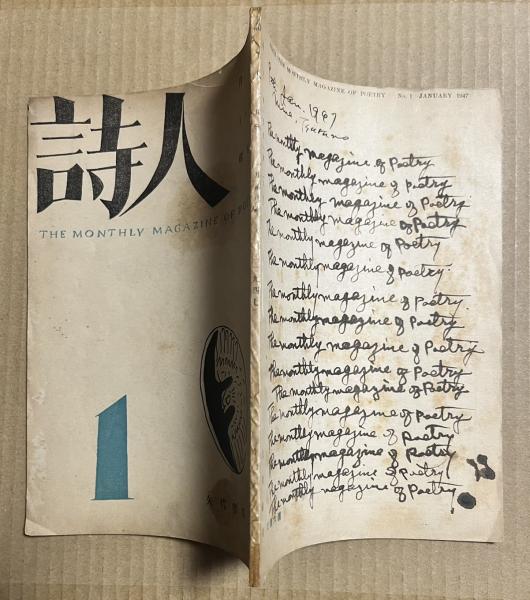 詩人
THE MONTHLY MAGAZINE OF
1
MONTHLY MAGAZINE OF POETRY No. 1 JANUARY 1947
Jan.
The monthly magazine of Poetry
The monthly magazine of Poetry
The monthly magazine of Poetry
The monthly magazine of Poetry
The monthly magazine of Poetry
The monthly magazine of Poetry.
The monthly magazine of Poetry.
The monthly magazine of Poetry
The monthly magazine of Poetry
The monthly magazine of Poetry
The monthly magazine of Poetry
The monthly magazine of Poetry
The monthly magazine of Poetry
The monthly magazine of Poetry
The monthly magazine of Poetry
The monthly magazine of Poetry